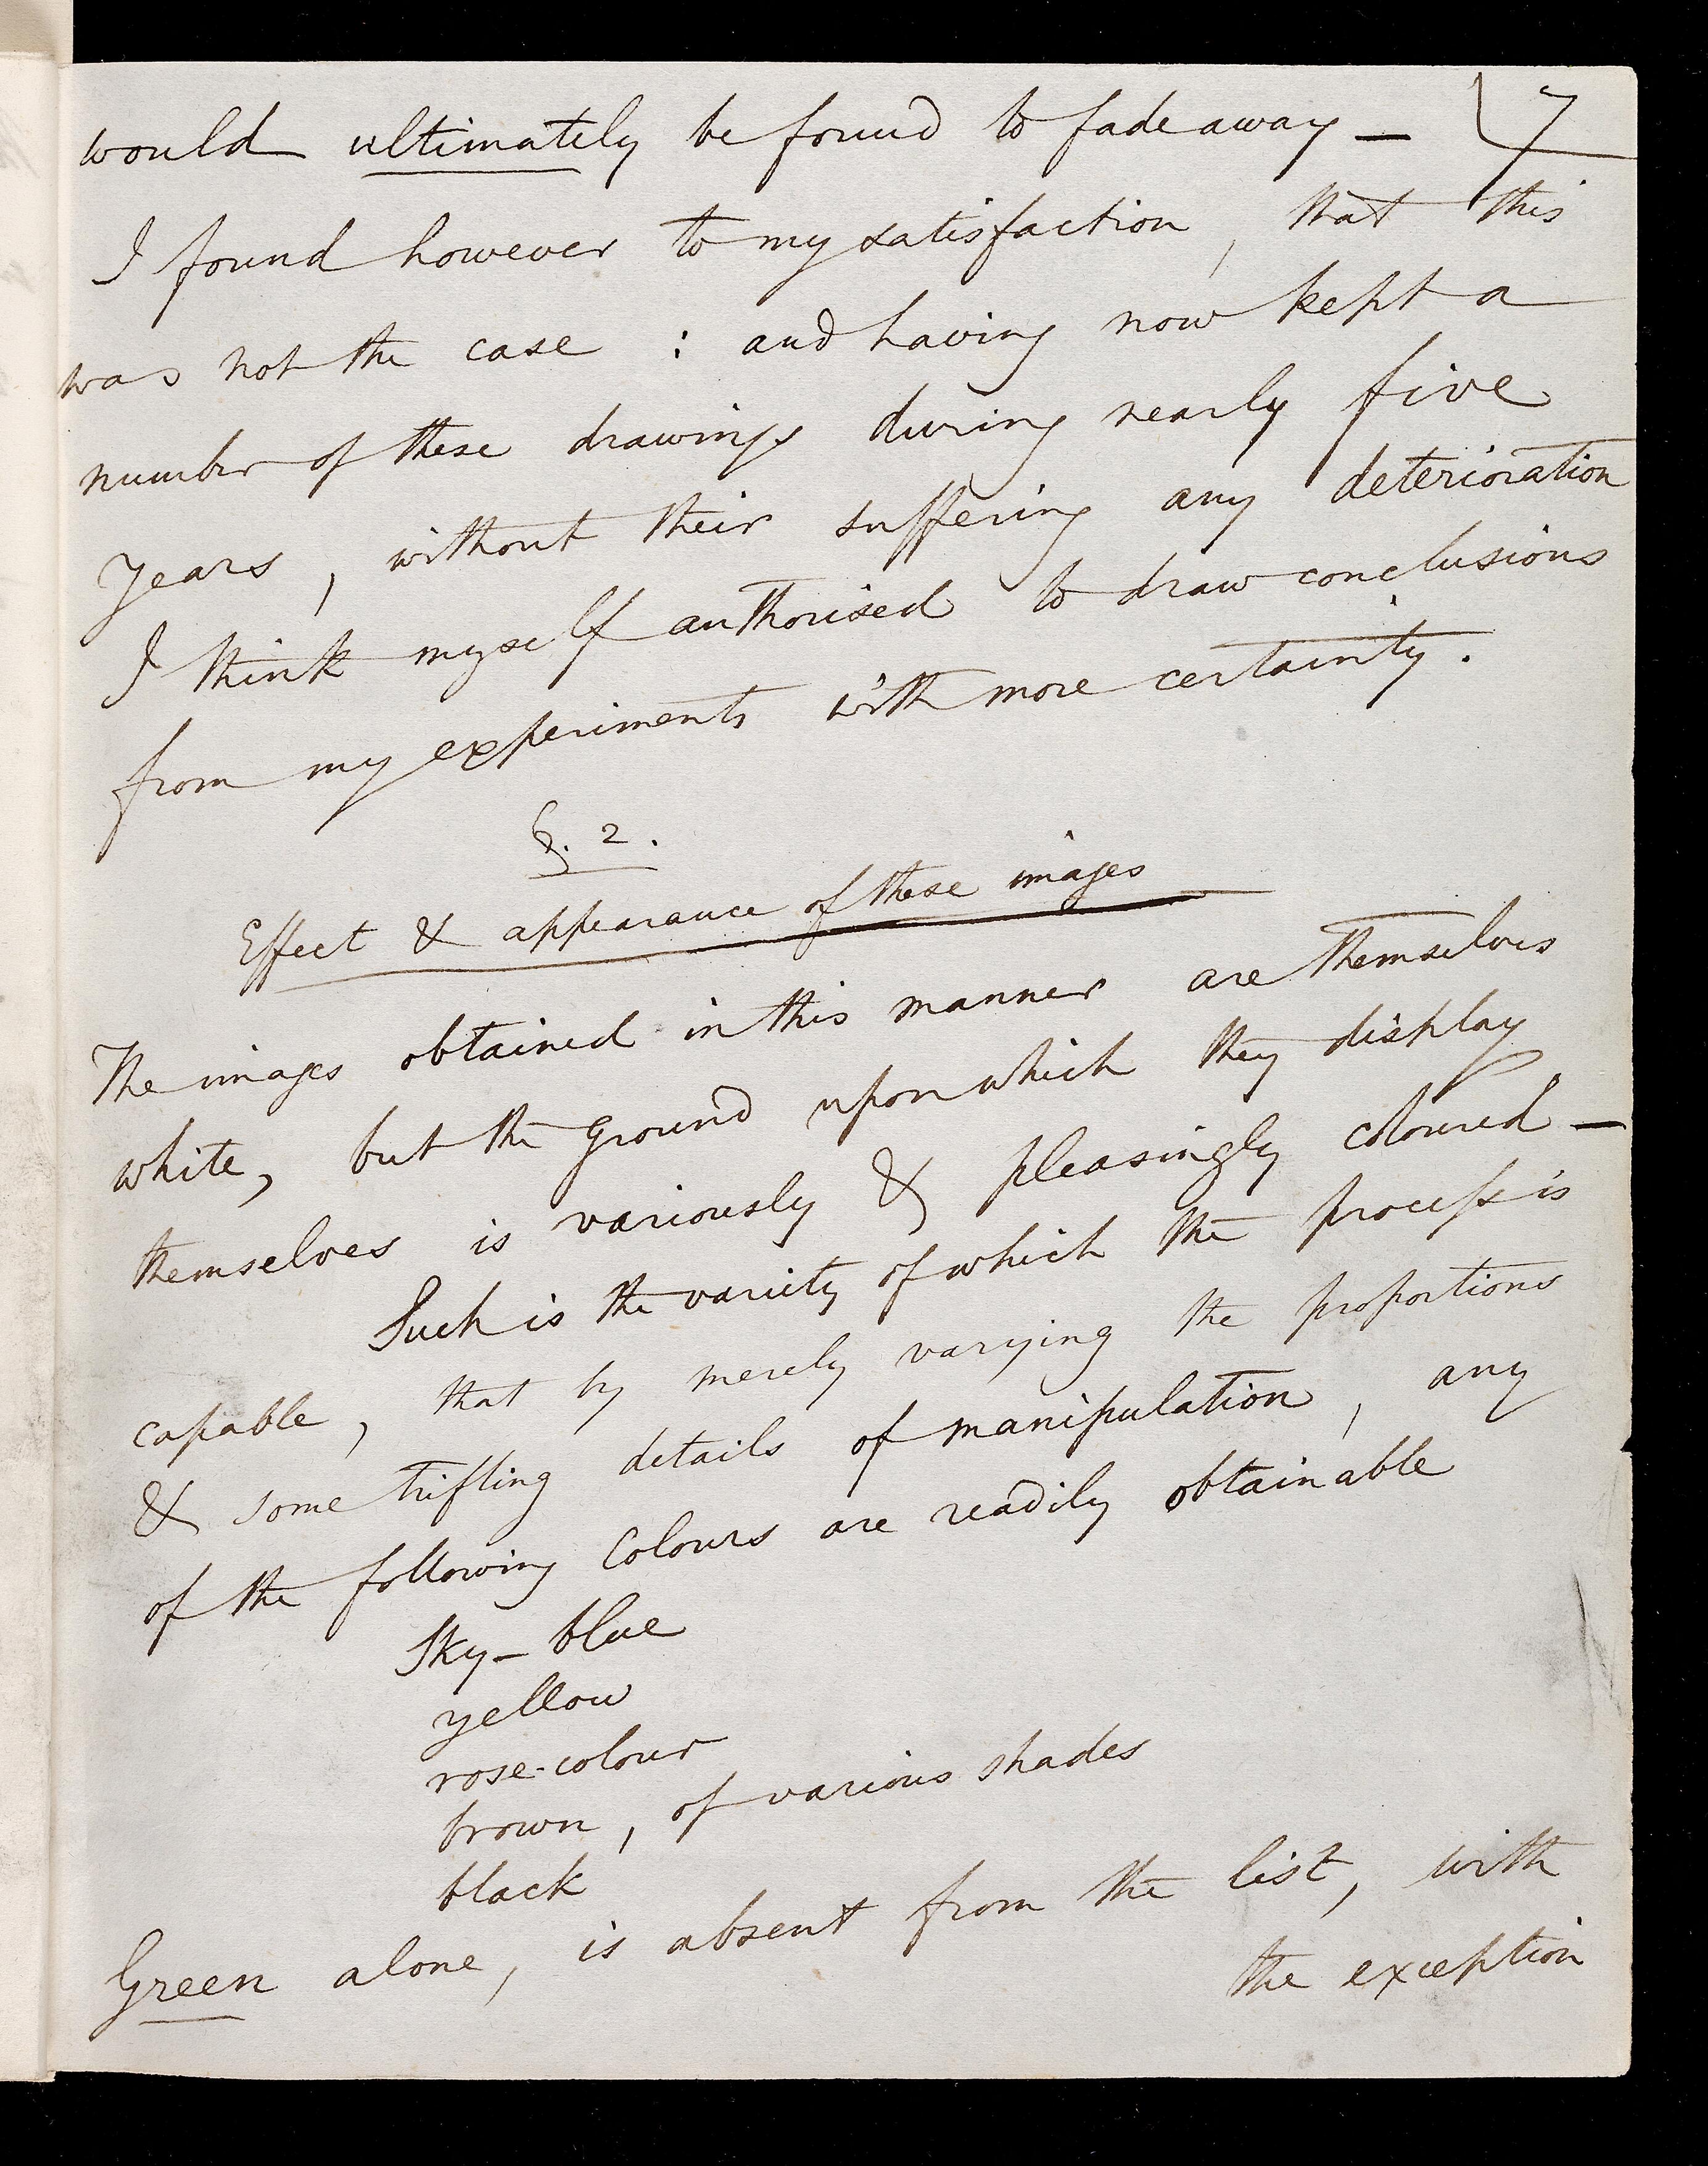 would ultimately be found to fade away — 7
I found however to my satisfaction, that this
was not the case : and having now kept a
number of these drawings during nearly five
years, without their suffering any deterioration
I think myself authorised to draw conclusions
from my experiments with more certainty.
§. 2.
Effect & appearance of these images
The images obtained in this manner are themselves
white, but the ground upon which they display
themselves is variously & pleasingly coloured —
Such is the variety of which the process is
capable, that by merely varying the proportions
& some trifling details of manipulation, any
of the following colours are readily obtainable
Sky-blue
yellow
rose-colour
brown, of various shades
black
Green alone, is absent from the list, with
the exception